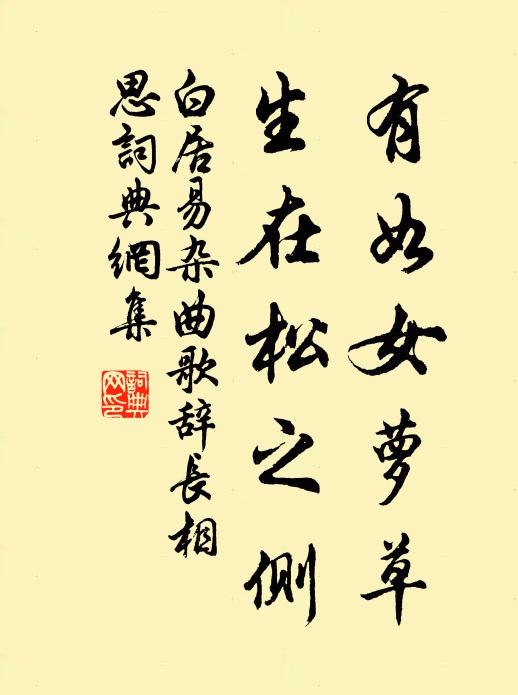 有如女萝草
生在松之侧
白居易杂曲歌辞长相
思詞典網集
詞典
网印